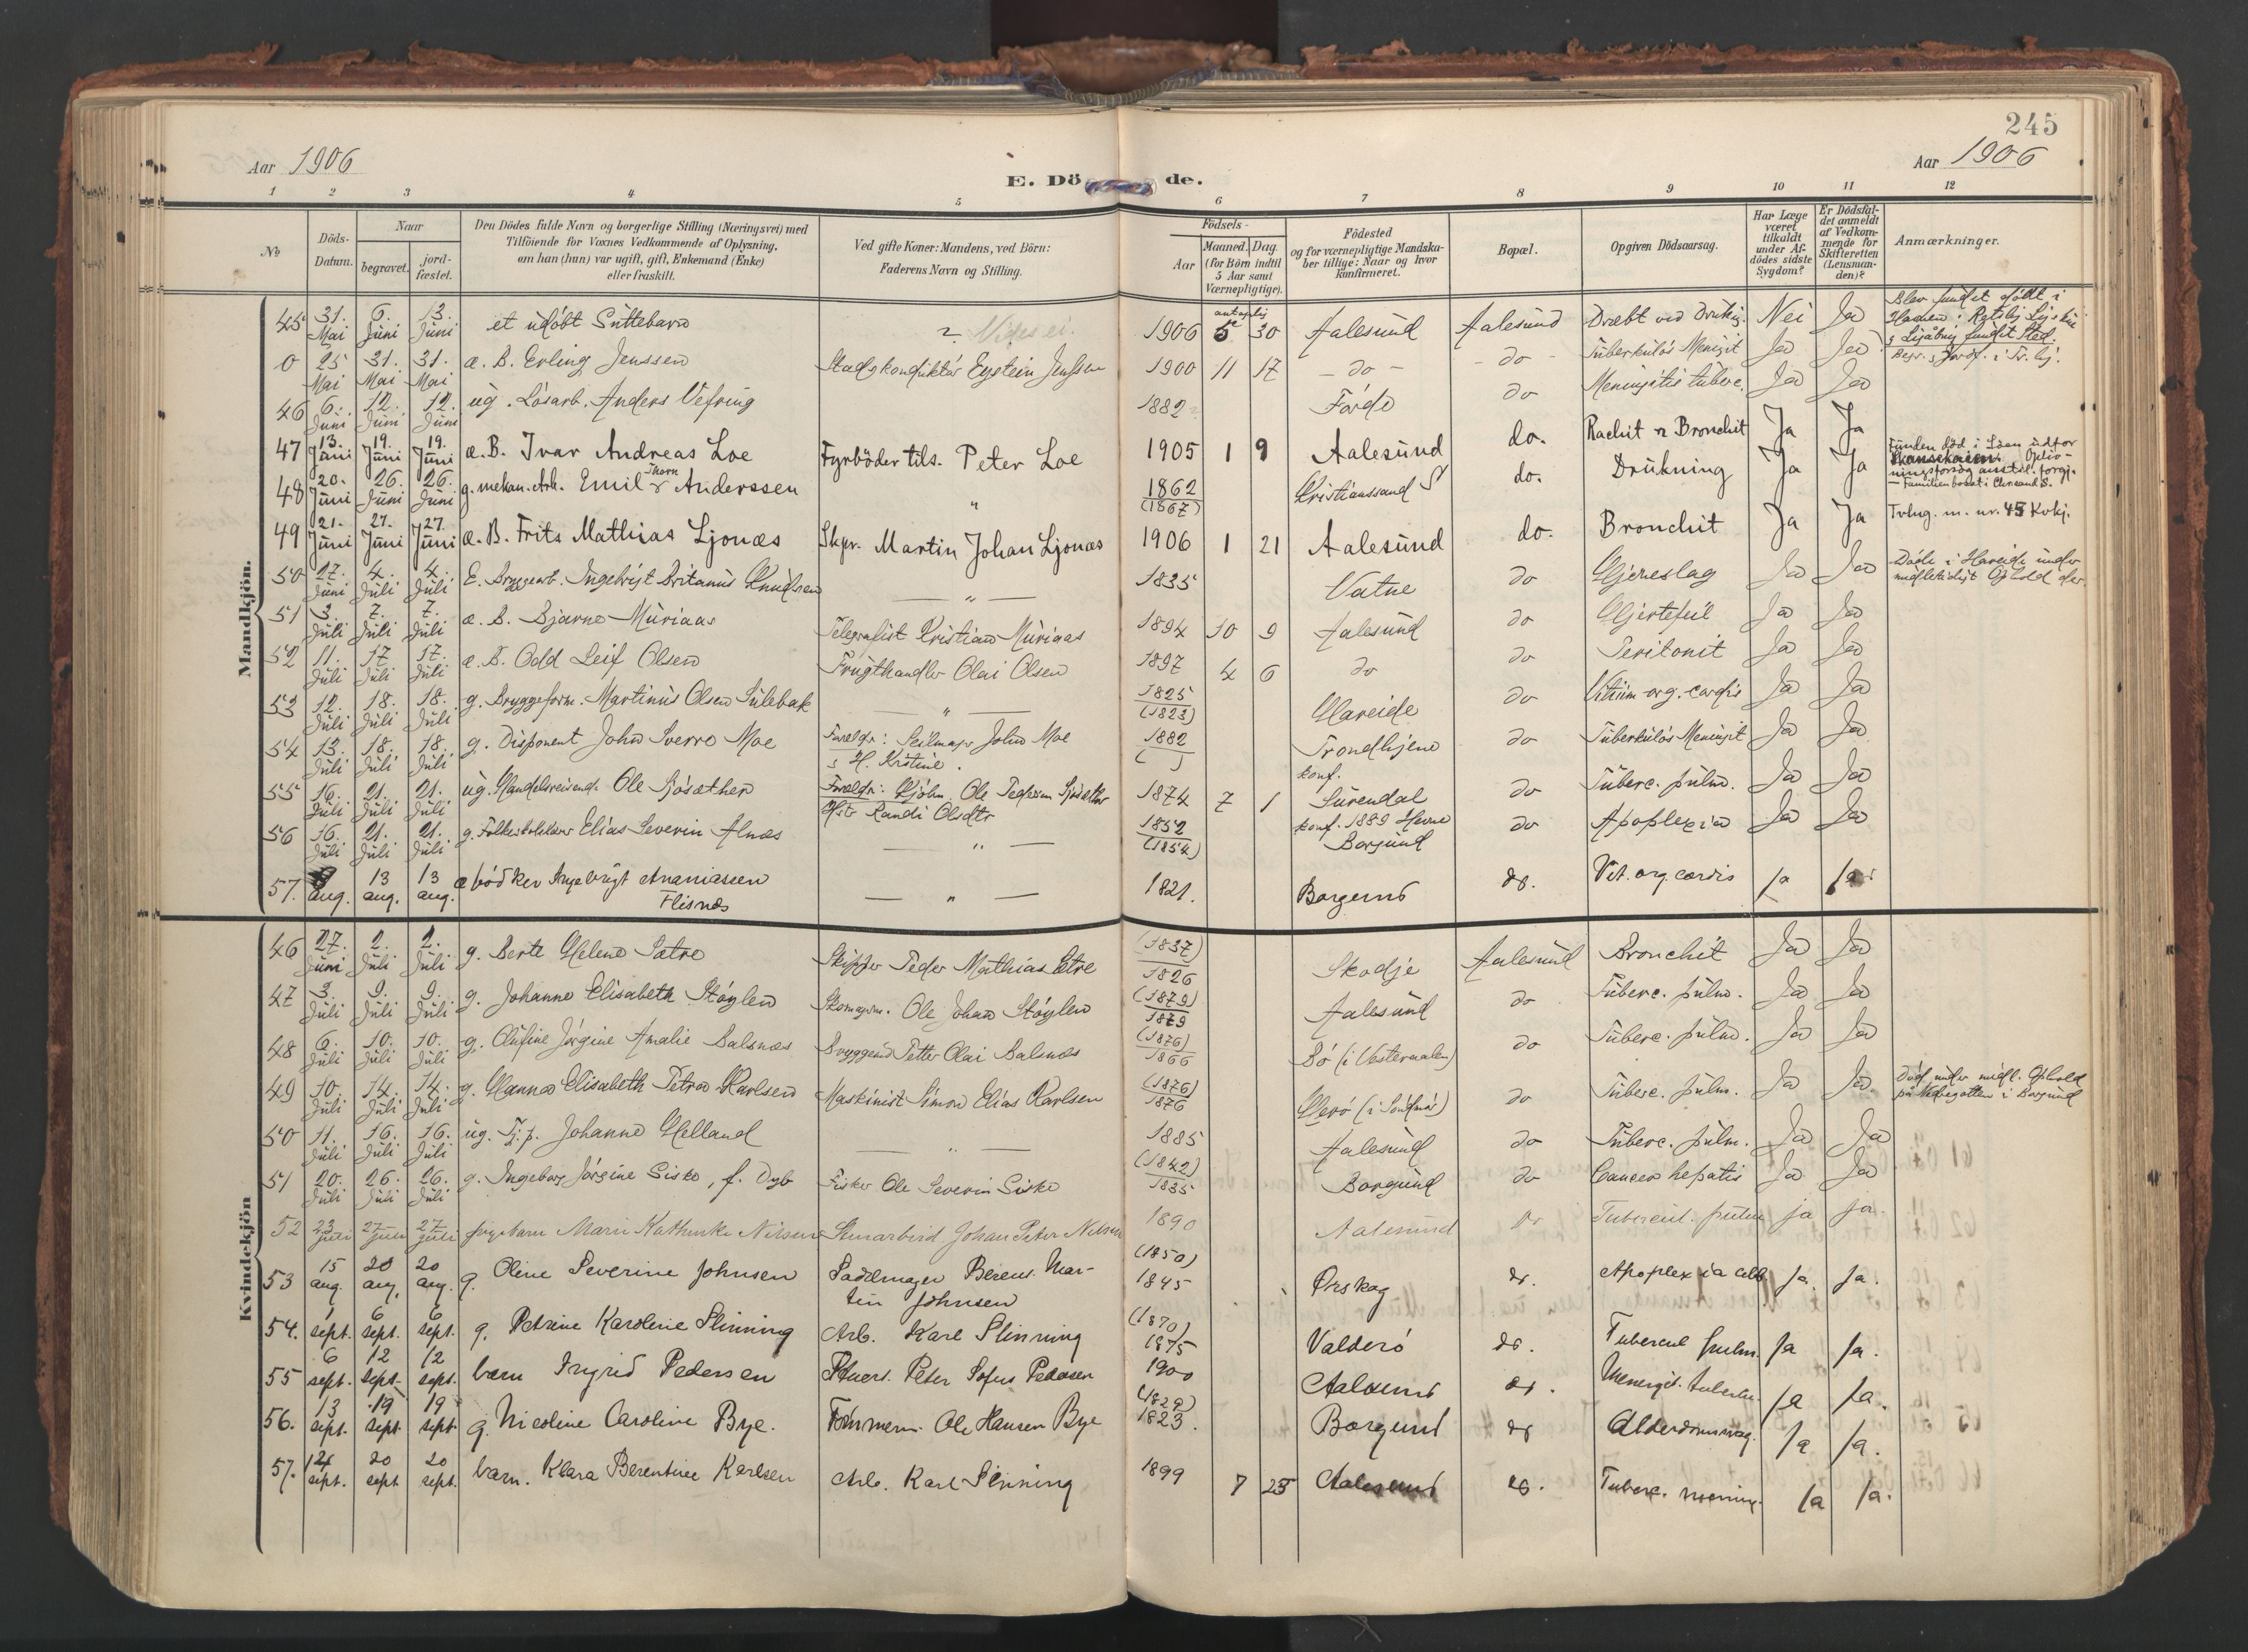 245
Aar 1906
E. Döde.
Aar 1906
1 2 3 4 5 6 7 8 9 10 11 12
No
Döds-Datum.
Naar
begravet.
jord-fæstet.
Den Dödes fulde Navn og borgerlige Stilling (Næringsvei) med
Tilföiende for Voxnes Vedkommende af Oplysning,
om han (hun) var ugift, gift, Enkemand (Enke)
eller fraskilt.
Ved gifte Koner: Mandens, ved Börn:
Faderens Navn og Stilling.
Födsels-
Aar
Maaned. Dag.
(for Börn indtil
5 Aar samt
Værnepligtige).
Födested
og for værnepligtige Mandska-
ber tillige: Naar og hvor
konfirmeret.
Bopæl.
Opgiven Dödsaarsag.
Har Læge
været
tilkaldt
under Af-
dödes sidste
Sygdom?
Er Dödsfal-
det anmeldt
af Vedkom-
mende for
Skifteretten
(Lensman-
den)?
Anmærkninger.
Mandkjön.
45 31. Mai 6. Juni 13. Juni et udöbt Guttebarn ? 1906 5 30 Aalesund Aalesund Dræbt ved Nei Ja Blev fundet födt i
0 25 Mai 31. Mai 31. Mai æ. B. Erling Jenssen Stadskonduktör Eystein Jenssen 1900 11 17 - do - - do - Tuberkulös Meningit Ja Ja
46 6. Juni 12. Juni 12. Juni ug. Lösarb. Anders Vefring 1882 Förde do Meningitis tuberc. Ja Ja
47 13. Juni 19. Juni 19. Juni æ. B. Ivar Andreas Loe Fyrböder tils. Peter Loe 1905 1 9 Aalesund do. Rachit & Bronchit Ja Ja
48 20. Juni 26. Juni 26. Juni g. mekan. Arb. Emil Thorv. Anderssen " 1862 (1867) Kristianssand S do. Drukning Ja Ja Funden död i Söen udfor Skansekaien. Opliv-ningsforsög anstil. forgj. - Familien bosat i Chrsand S.
49 21. Juni 27. Juni 27. Juni æ. B. Frits Mathias Ljonæs Skpr. Martin Johan Ljonæs 1906 1 21 Aalesund do. Bronchit Ja Ja Tvlng. m. nr. 45 Kvkj.
50 27. Juni 4. Juli 4. Juli E. Bryggearb. Ingebrigt Britanus Knudsen — " — 1835 Vatne do Hjerneslag Ja Ja Döde i Hareide under midlertidigt Ophold der
51 3. Juli 7. Juli 7. Juli æ. B. Bjarne Muriaas Telegrafist Kristian Muriaas 1894 10 9 Aalesund do Hjertefeil Ja Ja
52 11. Juli 17 Juli 17. Juli æ. B. Odd Leif Olsen Frugthandler Olai Olsen 1897 4 6 do do Peritonit Ja Ja
53 12. Juli 18. Juli 18. Juli g. Bryggeform. Martinus Olsen Sulebak — " — 1825 (1823) Hareide do Vitium org. cordis Ja Ja
54 13. Juli 18. Juli 18. Juli g. Disponent John Sverre Moe Foreldr: Seilmager John Moe & H. Kristine. 1882 ( ) Trondhjem konf. do Tuberkulös Meningit Ja Ja
55 16. Juli 21. Juli 21. Juli ug. Handelsreisend. Ole Sjösæther Foreldr: Kjöbm. Ole Pedersen Sjösæther Hstr Randi Olsdtr 1874 7 1 Surendal konf. 1889 Hevne do Tuberc. pulm. Ja Ja
56 16. Juli 21. Juli 21. Juli g. Folkeskolelærer Elias Severin Alnæs — " — 1852 (1854) Borgund do Apoplexia Ja Ja
57. aug. 13 aug. 13 aug. bödker Ingebrigt Ananiassen Flisnæs — " — 1821. Borgund do. Vit. org. cordis ja ja
Kvindekjön
46 27. Juni 2. Juli 2. Juli g. Berte Helene Sætre Skipper Peder Mathias Sætre (1837) 1826 Skodje Aalesund Bronchit Ja Ja
47 3. Juli 9. Juli 9. Juli g. Johanne Elisabeth Stöylen Skomagerm. Ole Johan Stöylen (1879) 1879 Aalesund do Tuberc. pulm. Ja Ja
48 6. Juli 10. Juli 10. Juli g. Olufine Jörgine Amalie Balsnæs Petter Olai Balsnæs (1876) 1866 Bö (i Vesteraalen) do Tuberc. pulm. Ja Ja
49 10. Juli 14. Juli 14. Juli g. Hanna Elisabeth Petra Karlsen Maskinist Simon Elias Karlsen (1876) 1876 Herö (i Söndmör) do Tuberc. pulm. Ja Ja Död under midl. Ophold i Borgund
50 11. Juli 16. Juli 16. Juli ug. Tj. p. Johanne Helland — " — 1885 Aalesund do Tuberc. pulm. Ja Ja
51 20. Juli 26. Juli 26. Juli g. Ingeborg Jörgine Giske, f. Dyb Fisker Ole Severin Giske (1842) 1835 Borgund do Cancer hepatis Ja Ja
52 23 juli 27 juli 27 juli pigebarn Marie Kathinka Nilsen Stenarbeid. Johan Peter Nilsen 1890 Aalesund do Tubercul. pulm ja ja.
53 15 aug. 20 aug. 20 aug. g. Oline Severine Johnsen Sadelmager Berent Mar-tin Johnsen (1850) 1845 Ørskog do. Apoplexia cerb ja. ja.
54. 1 sept. 6 sept. 6 sept. g. Petrine Karoline Slinning Arb. Karl Slinning (1870) 1875 Valderö do. Tubercul pulm. ja ja.
55 6 sept. 12 sept. 12 sept. barn Ingrid Pedersen Peter Sofus Pedersen 1900 Aalesund do. Meningit. tubercu. ja ja.
56. 13 sept. 19 sept. 19 sept. g. Nicoline Caroline Bye. Tömmerm. Ole Hansen Bye (1829) 1823. Borgund do Alderdomssvag. ja ja.
57. 14 sept. 20 sept 20 sept. barn. Klara Berentine Karlsen Arb. Karl Slinning 1899 7 25 Aalesund do. Tuberc. mening. ja ja.